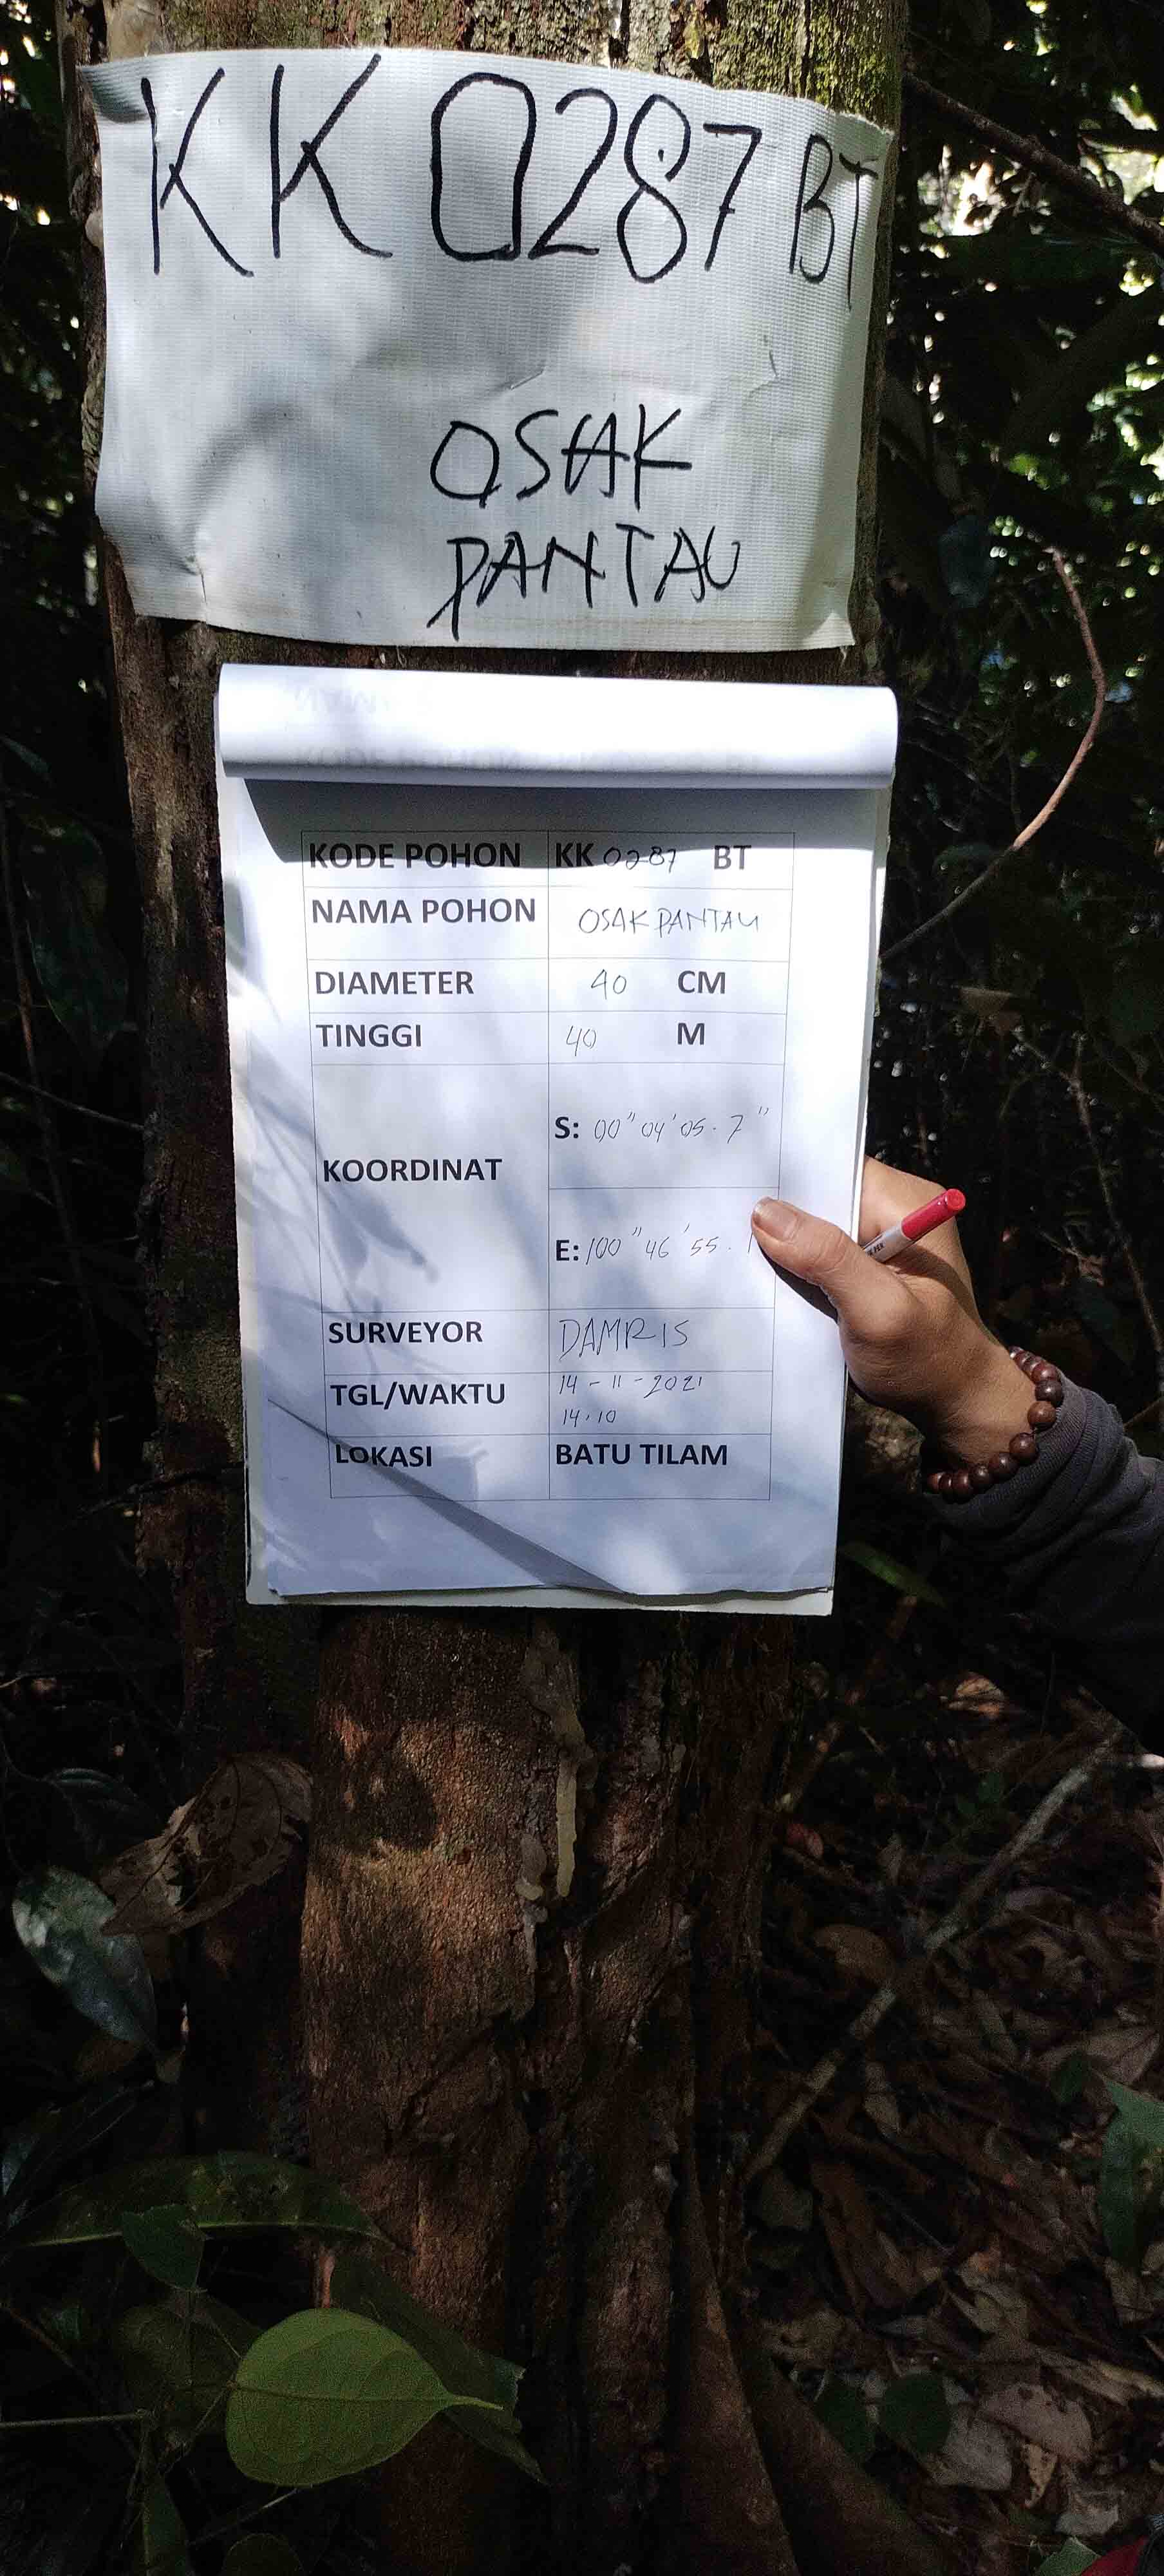 KK 0287 BT
OSAK
PANTAU
KODE POHON KK 0287 BT
NAMA POHON OSAK PANTAU
DIAMETER 40 CM
TINGGI 40 M
KOORDINAT
S: 00" 04' 05.7"
E: 100" 46' 55.1
SURVEYOR DAMRIS
TGL/WAKTU 14-11-2021
14.10
LOKASI BATU TILAM